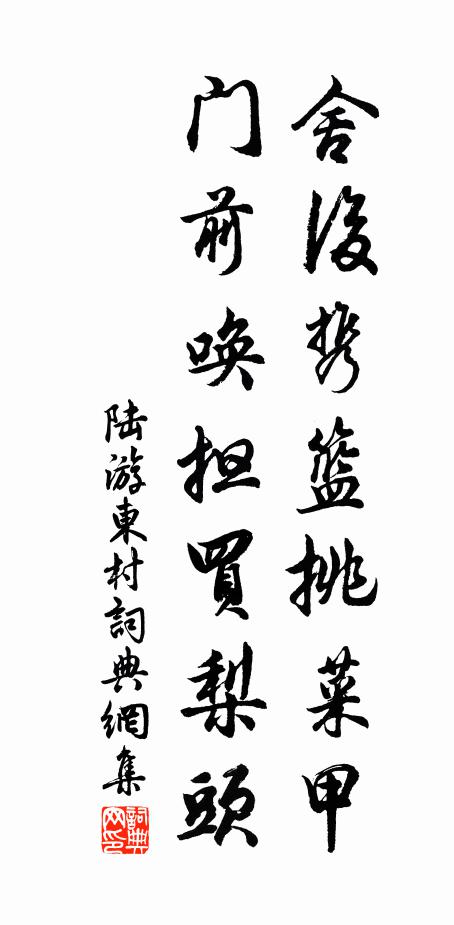 舍後携籃挑菜甲
门前唤担買梨頭
陸游東村詞典網集
詞典网印